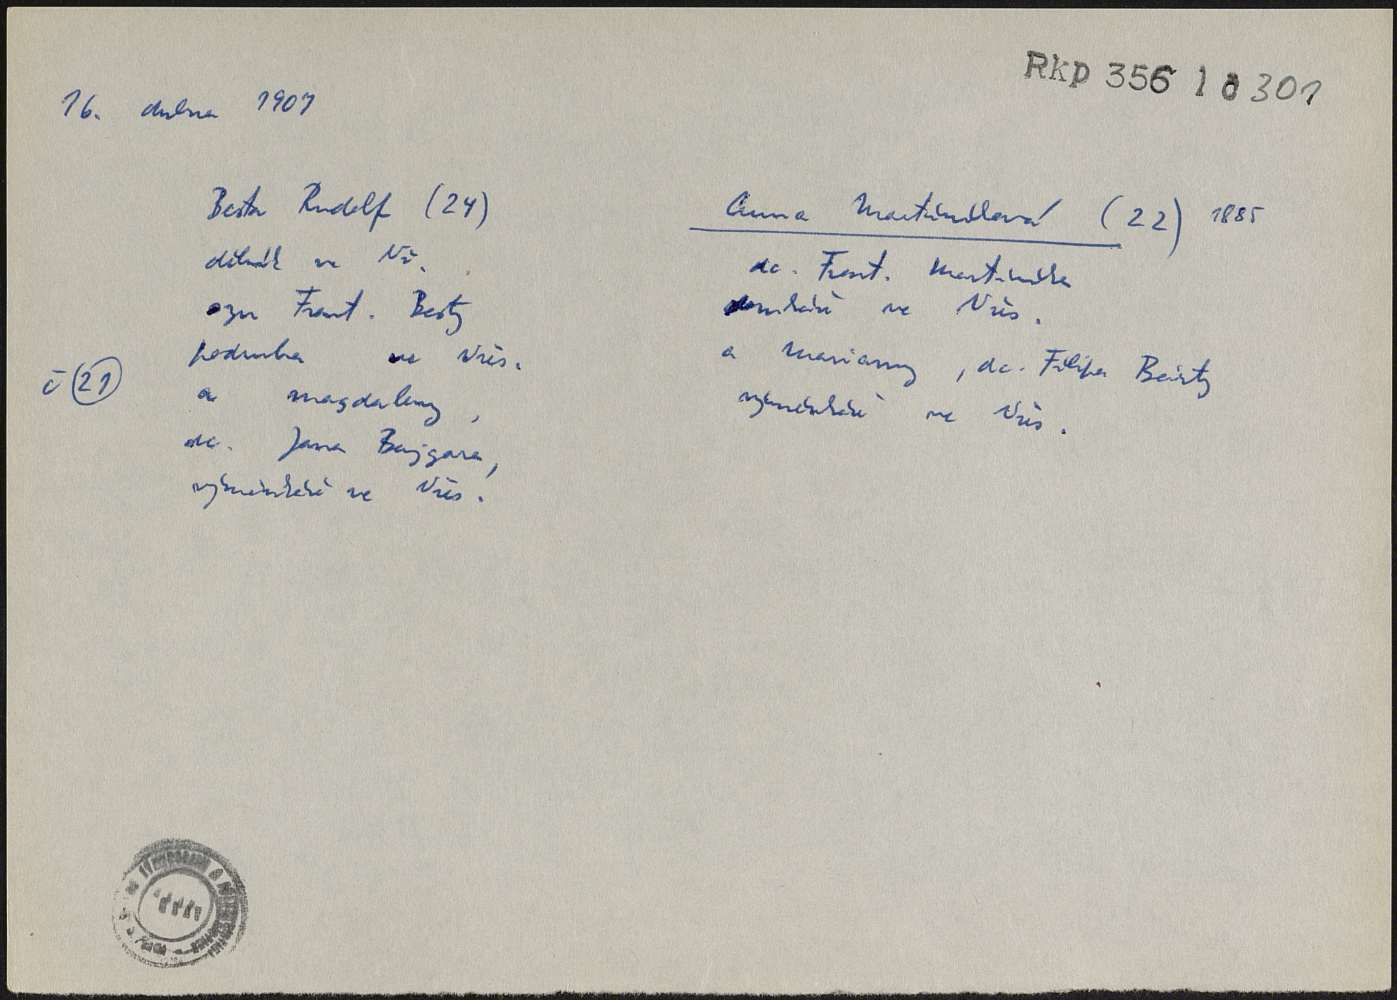 Rkp 356 1 d 301
16. dubna 1907
Besta Rudolf (24)
dělník ve Vř.
syn Frant. Besty
podruha ve Vřes.
č 21
a Magdaleny,
dc. Jana Bajgara,
výměnkáře ve Vřes.
Anna Martiníková (22) 1885
dc. Frant. Martiníka
domkáře ve Vřes.
a Marianny, dc. Filipa Besty
výměnkáře ve Vřes.